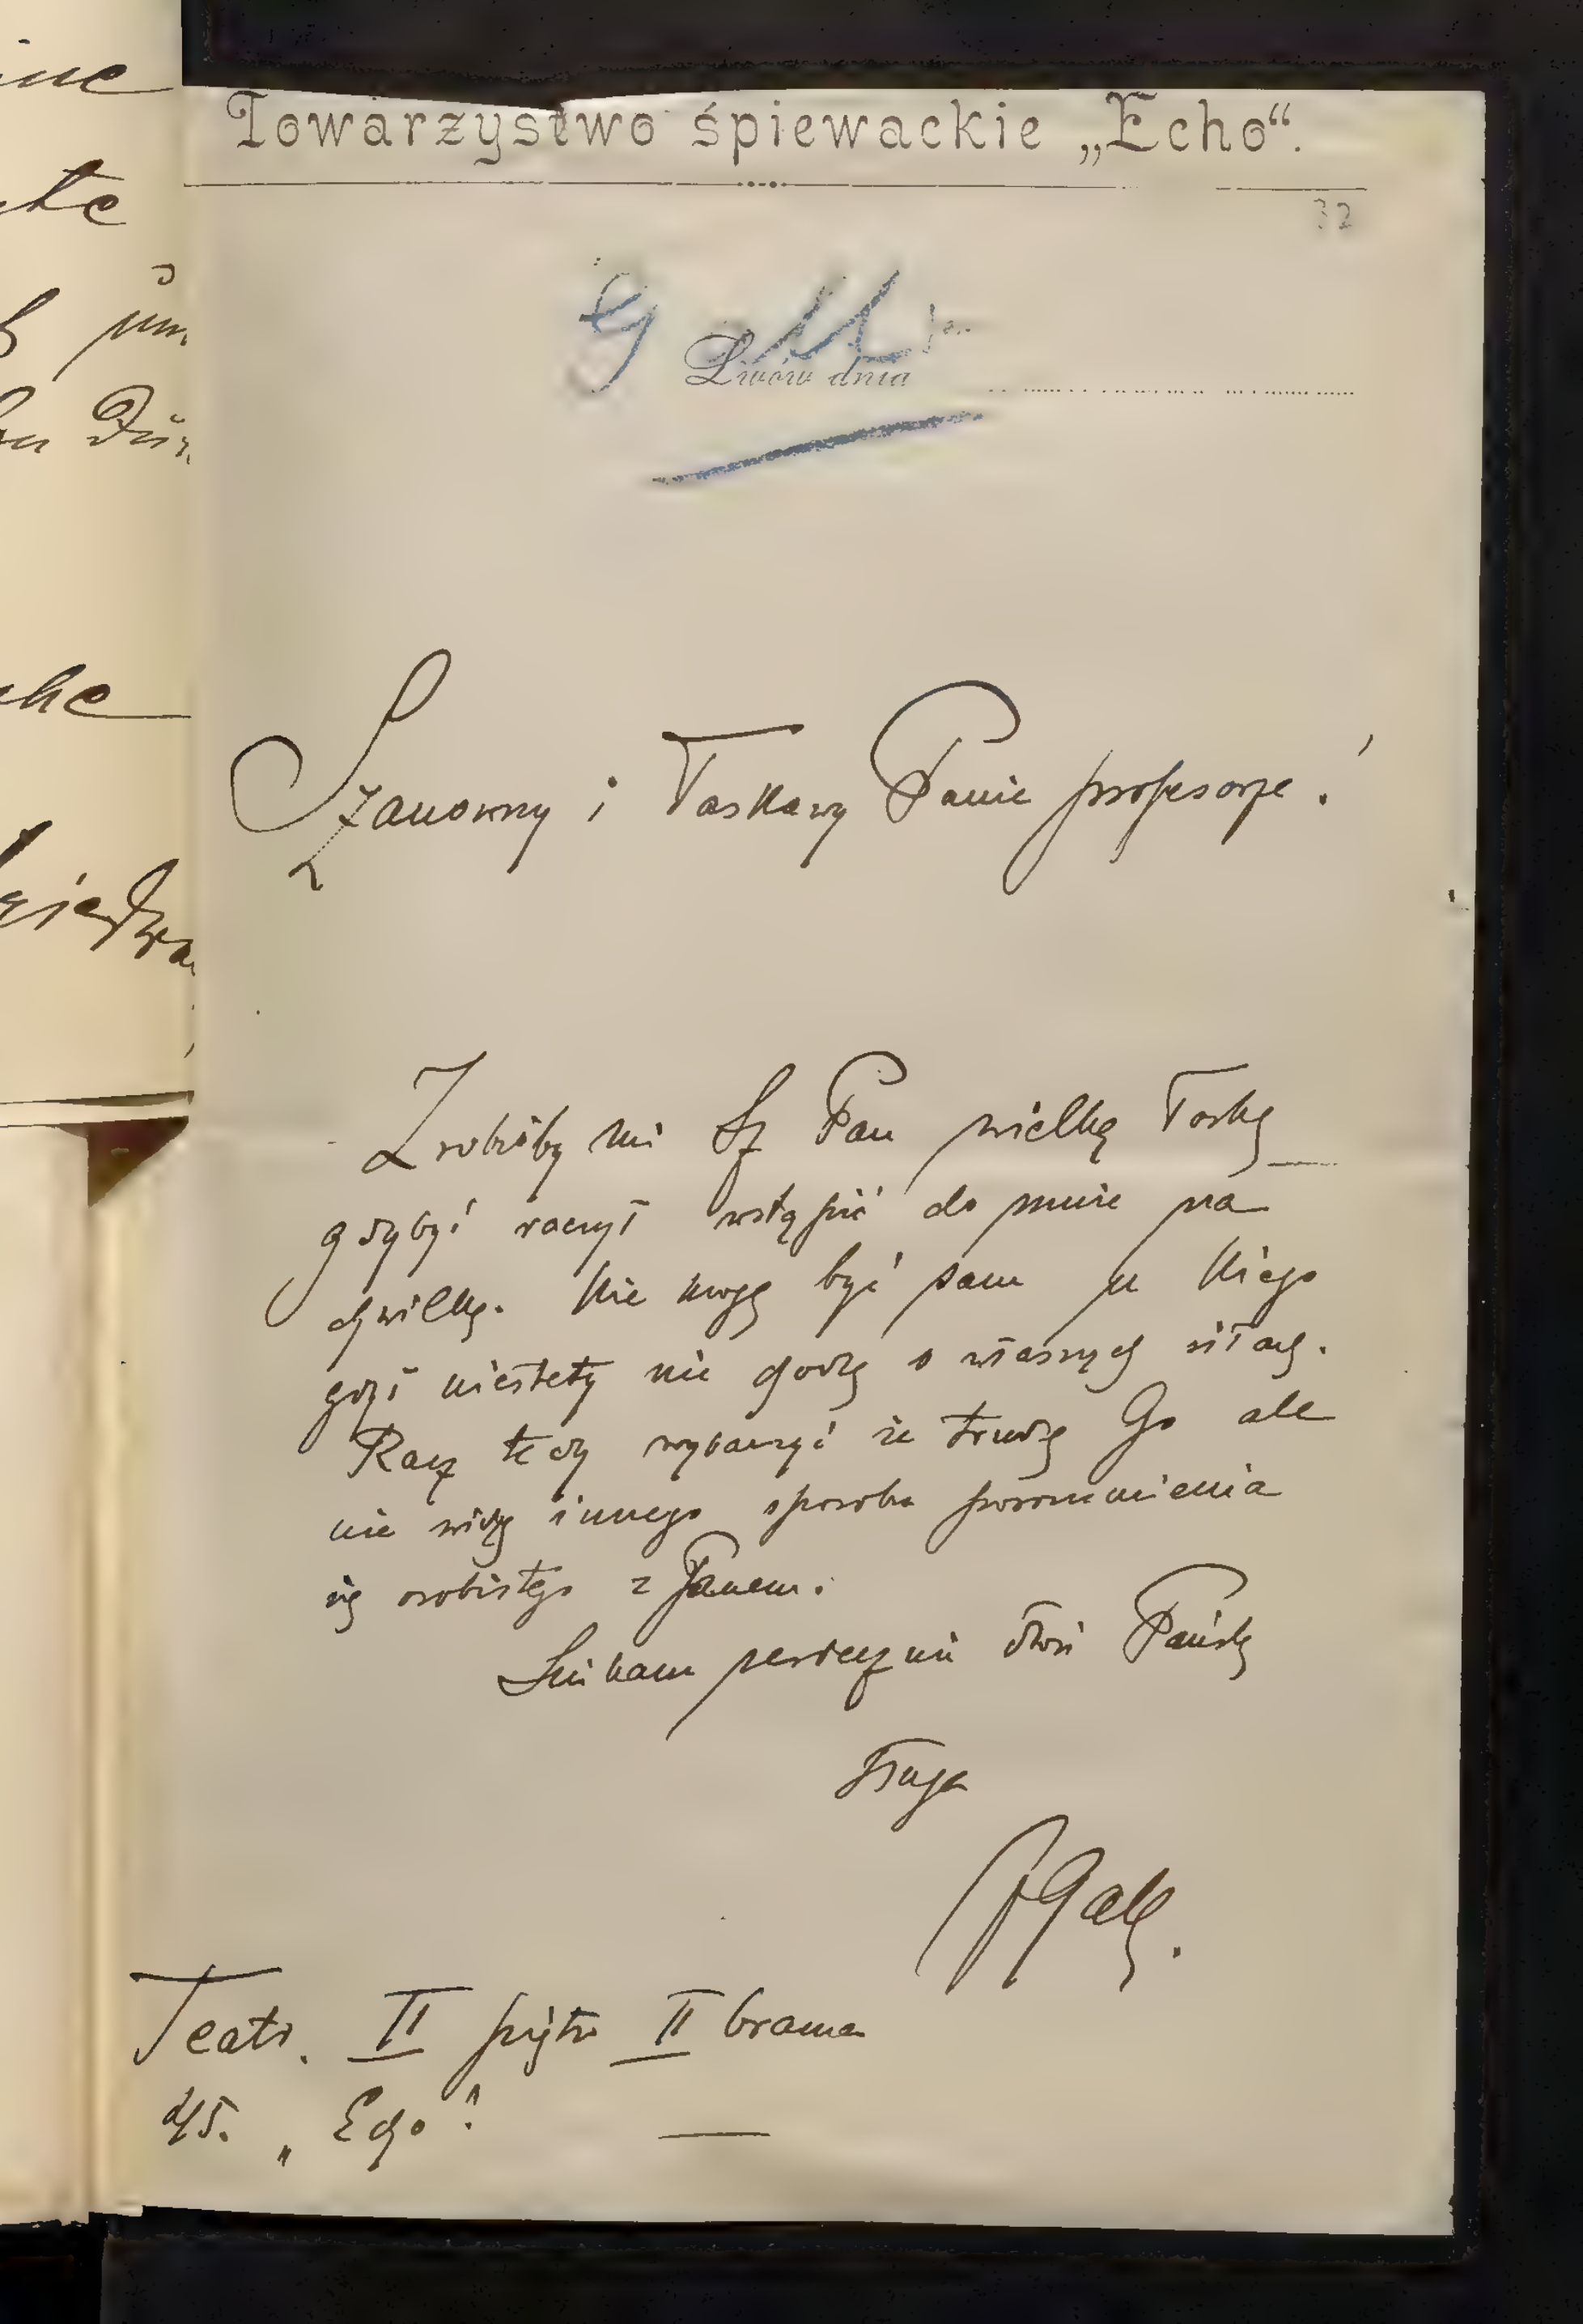 Towarzystwo śpiewackie „Echo“.
32
Gall
Lwów dnia
Szanowny i Łaskawy Panie profesorze!
Zrobiłby mi Sz Pan wielką łaskę
gdybyś raczył wstąpić do mnie na
chwilkę. Nie mogę być sam u Niego
gdyż niestety nie chodzę o własnych siłach.
Racz tedy wybaczyć że trudzę Go ale
nie widzę innego sposobu porozumienia
się osobistego z Panem.
Ściskam serdecznie dłoń Pańską
sługa
JGall.
Teatr. II piętro II brama
„Echo“